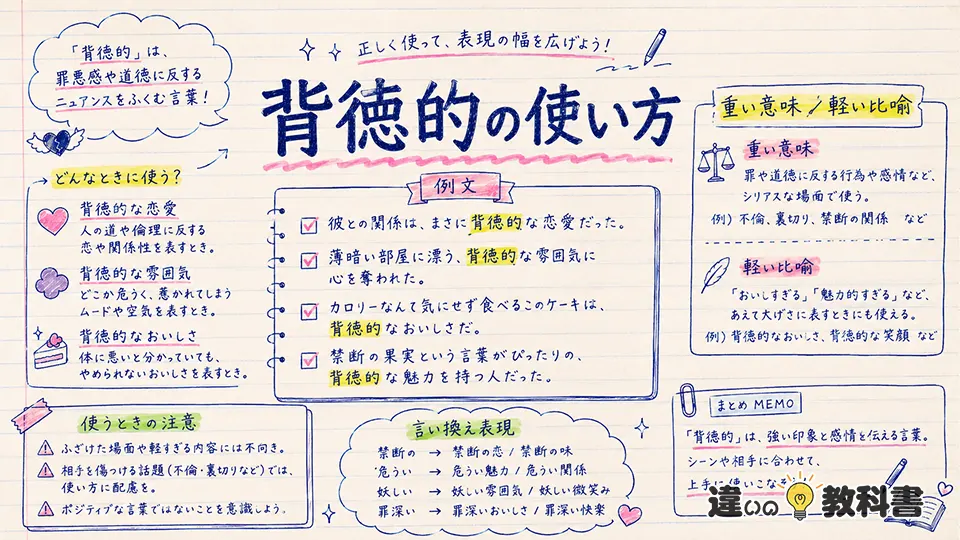 「背徳的」は、
罪悪感や道徳に反する
ニュアンスをふくむ言葉！
正しく使って、表現の幅を広げよう！
背徳的の使い方
どんなときに使う？
背徳的な恋愛
人の道や倫理に反する
恋や関係性を表すとき。
背徳的な雰囲気
どこか危うく、惹かれてしまう
ムードや空気を表すとき。
背徳的なおいしさ
体に悪いと分かっていても、
やめられないおいしさを表すとき。
例文
彼との関係は、まさに背徳的な恋愛だった。
薄暗い部屋に漂う、背徳的な雰囲気に
心を奪われた。
カロリーなんて気にせず食べるこのケーキは、
背徳的なおいしさだ。
禁断の果実という言葉がぴったりの、
背徳的な魅力を持つ人だった。
重い意味／軽い比喩
重い意味
罪や道徳に反する行為や感情など、
シリアスな場面で使う。
例）不倫、裏切り、禁断の関係 など
軽い比喩
「おいしすぎる」「魅力的すぎる」など、
あえて大げさに表すときにも使える。
例）背徳的なおいしさ、背徳的な笑顔 など
使うときの注意
ふざけた場面や軽すぎる内容には不向き。
相手を傷つける話題（不倫・裏切りなど）では、
使い方に配慮を。
ポジティブな言葉ではないことを意識しよう。
言い換え表現
禁断の → 禁断の恋 / 禁断の味
危うい → 危うい魅力 / 危うい関係
妖しい → 妖しい雰囲気 / 妖しい微笑み
罪深い → 罪深いおいしさ / 罪深い快楽
まとめ MEMO
「背徳的」は、強い印象と感情を伝える言葉。
シーンや相手に合わせて、
上手に使いこなそ
違いの教科書